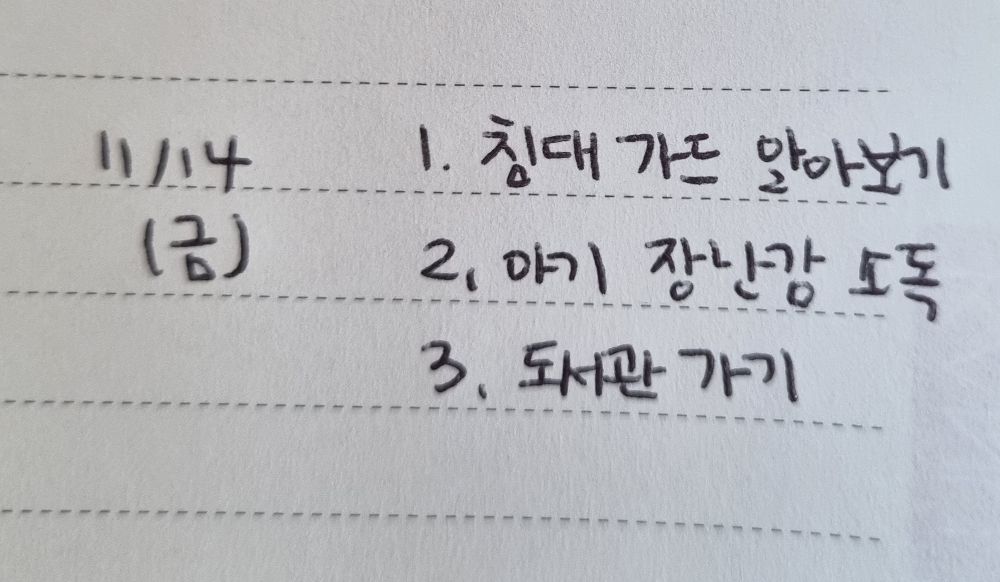 11/14 1. 침대 가드 알아보기
(금) 2. 아기 장난감 소독
3. 도서관 가기